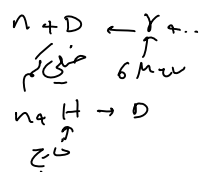 n + D ← γ + ..
خیلی کم
6 Mev
n + H → D
خارج